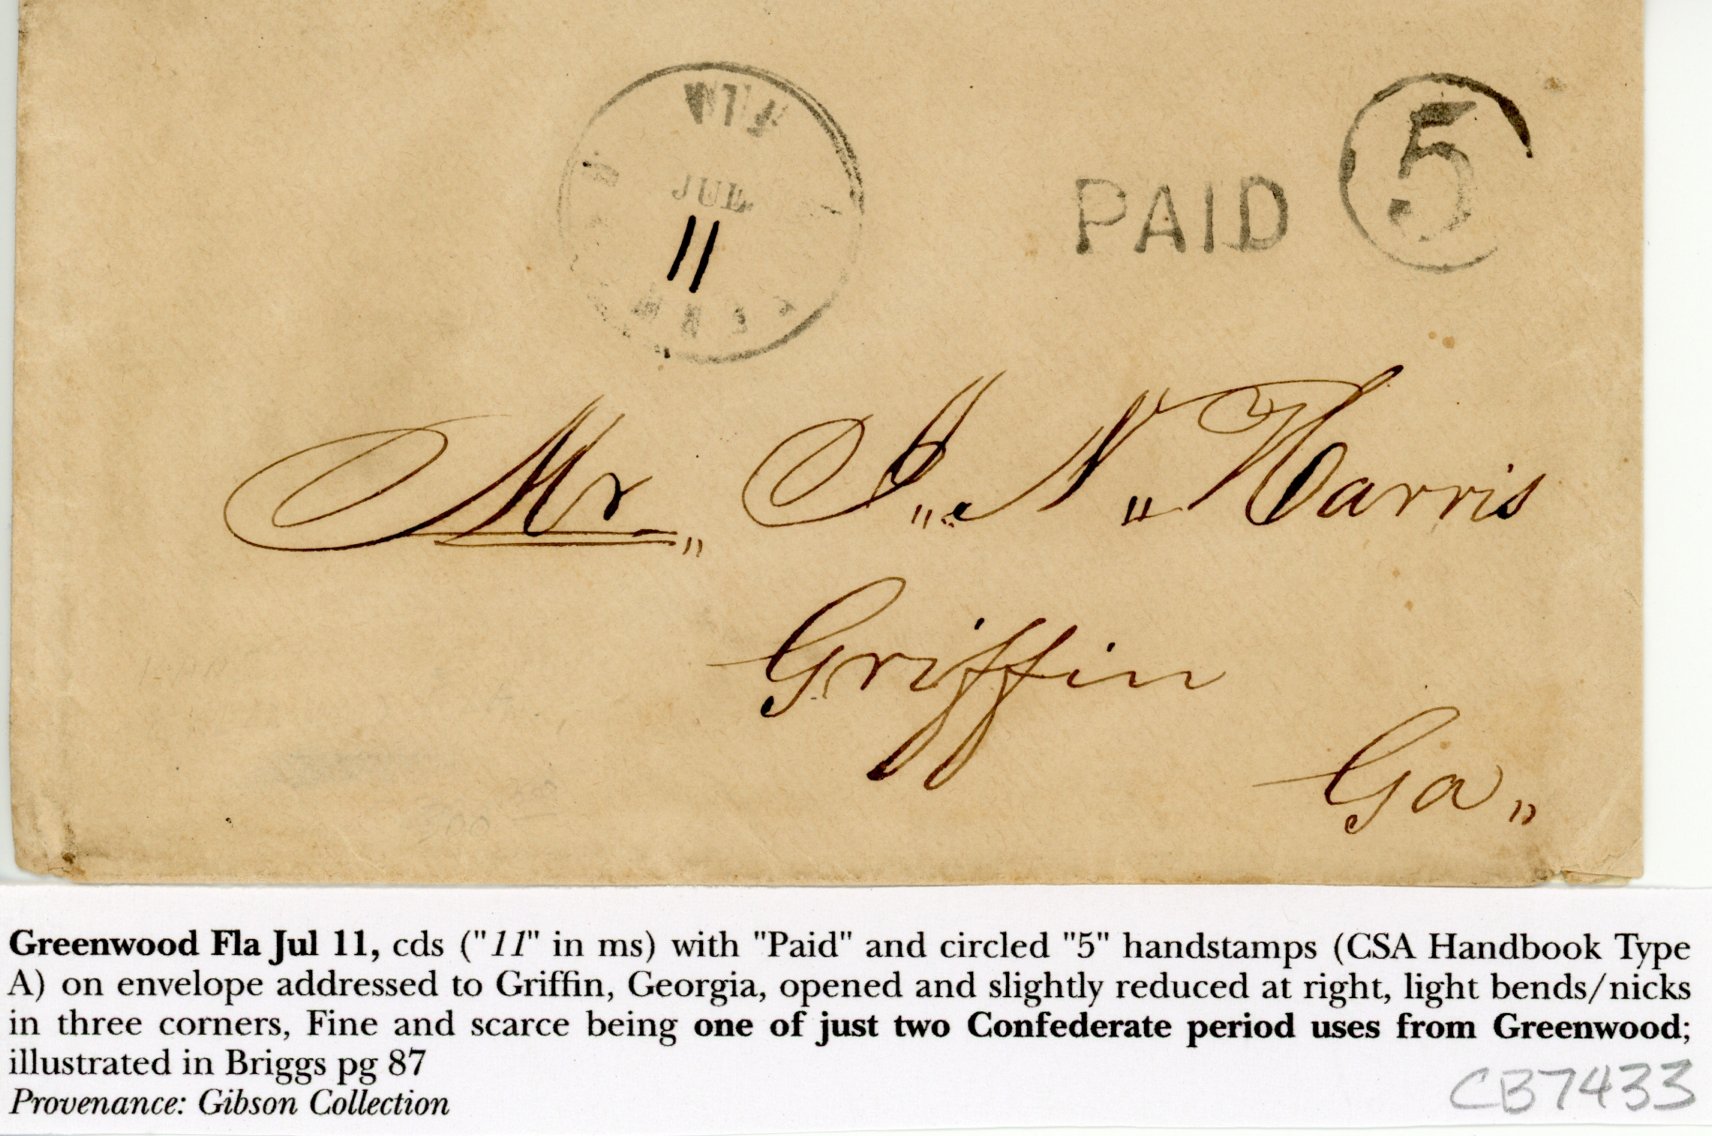 FLA
JUL
11
PAID 5
Mr,, I,, N,, Harris
Griffin
Ga,,
Greenwood Fla Jul 11, cds ("11" in ms) with "Paid" and circled "5" handstamps (CSA Handbook Type
A) on envelope addressed to Griffin, Georgia, opened and slightly reduced at right, light bends/nicks
in three corners, Fine and scarce being one of just two Confederate period uses from Greenwood;
illustrated in Briggs pg 87
Provenance: Gibson Collection
CB7433